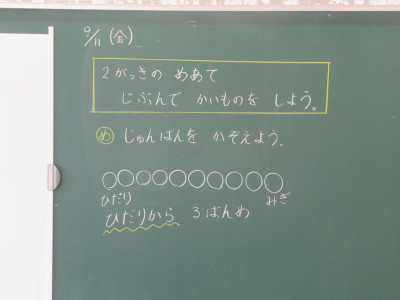 9/11 (金)
2がっきの めあて
じぶんで かいものを しよう。
め じゅんばんを かぞえよう。
○○○○○○○○○○
ひだり みぎ
ひだりから 3ばんめ